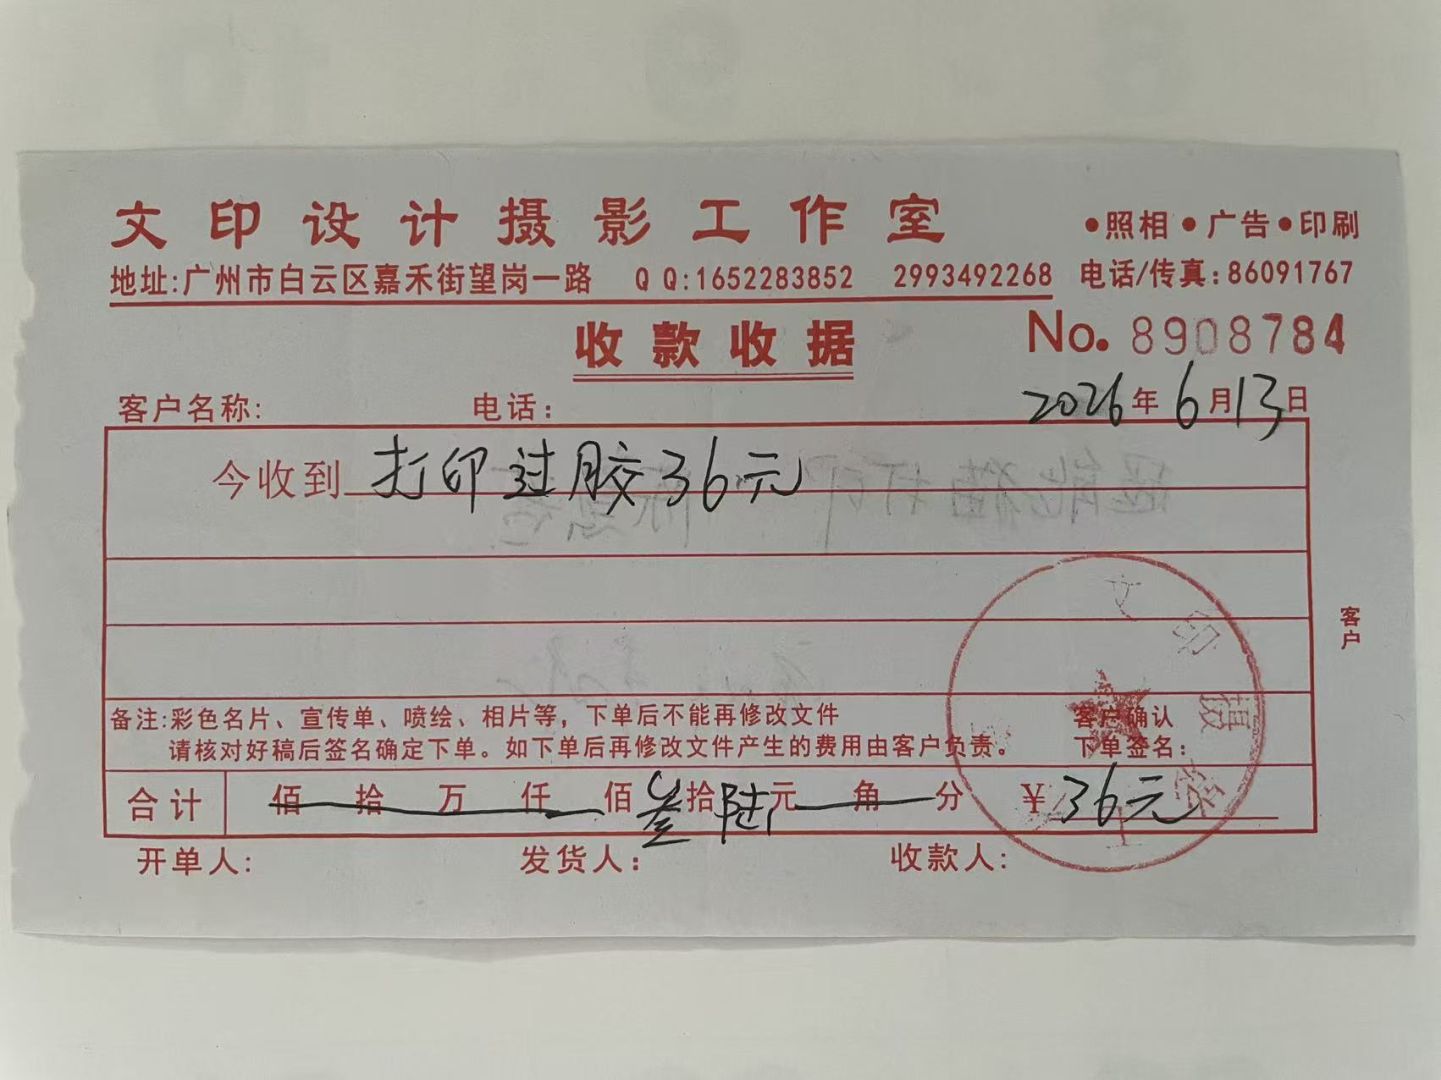 文印设计摄影工作室
•照相•广告•印刷
地址:广州市白云区嘉禾街望岗一路 QQ:1652283852 2993492268 电话/传真:86091767
收款收据
No. 8908784
客户名称: 电话: 2026年6月13日
今收到 打印过胶36元
客户
备注:彩色名片、宣传单、喷绘、相片等，下单后不能再修改文件
请核对好稿后签名确定下单。如下单后再修改文件产生的费用由客户负责。
客户确认
下单签名:
合计 佰拾万仟佰叁拾陆元角分 ￥36元
开单人: 发货人: 收款人:
文印